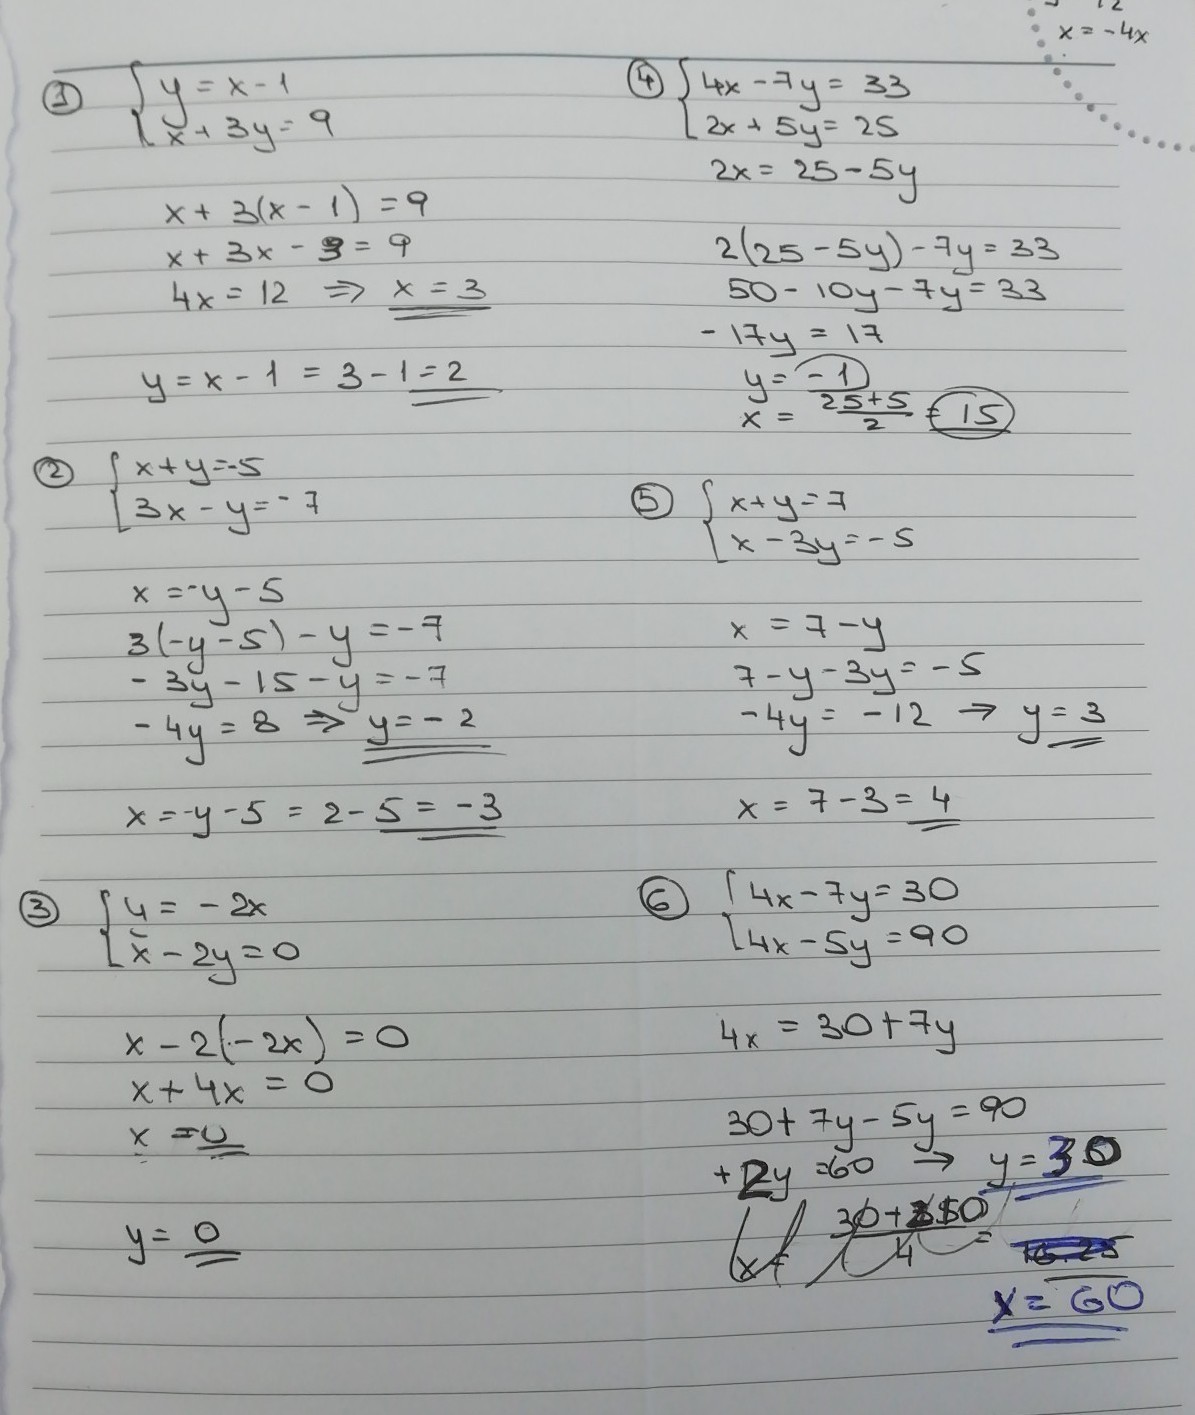 12
x = -4x
① { y = x - 1
x + 3y = 9
x + 3(x - 1) = 9
x + 3x - 3 = 9
4x = 12 ⇒ x = 3
y = x - 1 = 3 - 1 = 2
② { x + y = -5
3x - y = -7
x = -y - 5
3(-y - 5) - y = -7
- 3y - 15 - y = -7
- 4y = 8 ⇒ y = - 2
x = -y - 5 = 2 - 5 = -3
③ { y = - 2x
x - 2y = 0
x - 2(-2x) = 0
x + 4x = 0
x = 0
y = 0
④ { 4x - 7y = 33
2x + 5y = 25
2x = 25 - 5y
2(25 - 5y) - 7y = 33
50 - 10y - 7y = 33
- 17y = 17
y = -1
x = 25+5/2 = 15
⑤ { x + y = 7
x - 3y = - 5
x = 7 - y
7 - y - 3y = - 5
- 4y = - 12 → y = 3
x = 7 - 3 = 4
⑥ { 4x - 7y = 30
4x - 5y = 90
4x = 30 + 7y
30 + 7y - 5y = 90
+ 2y = 60 → y = 30
x = 60